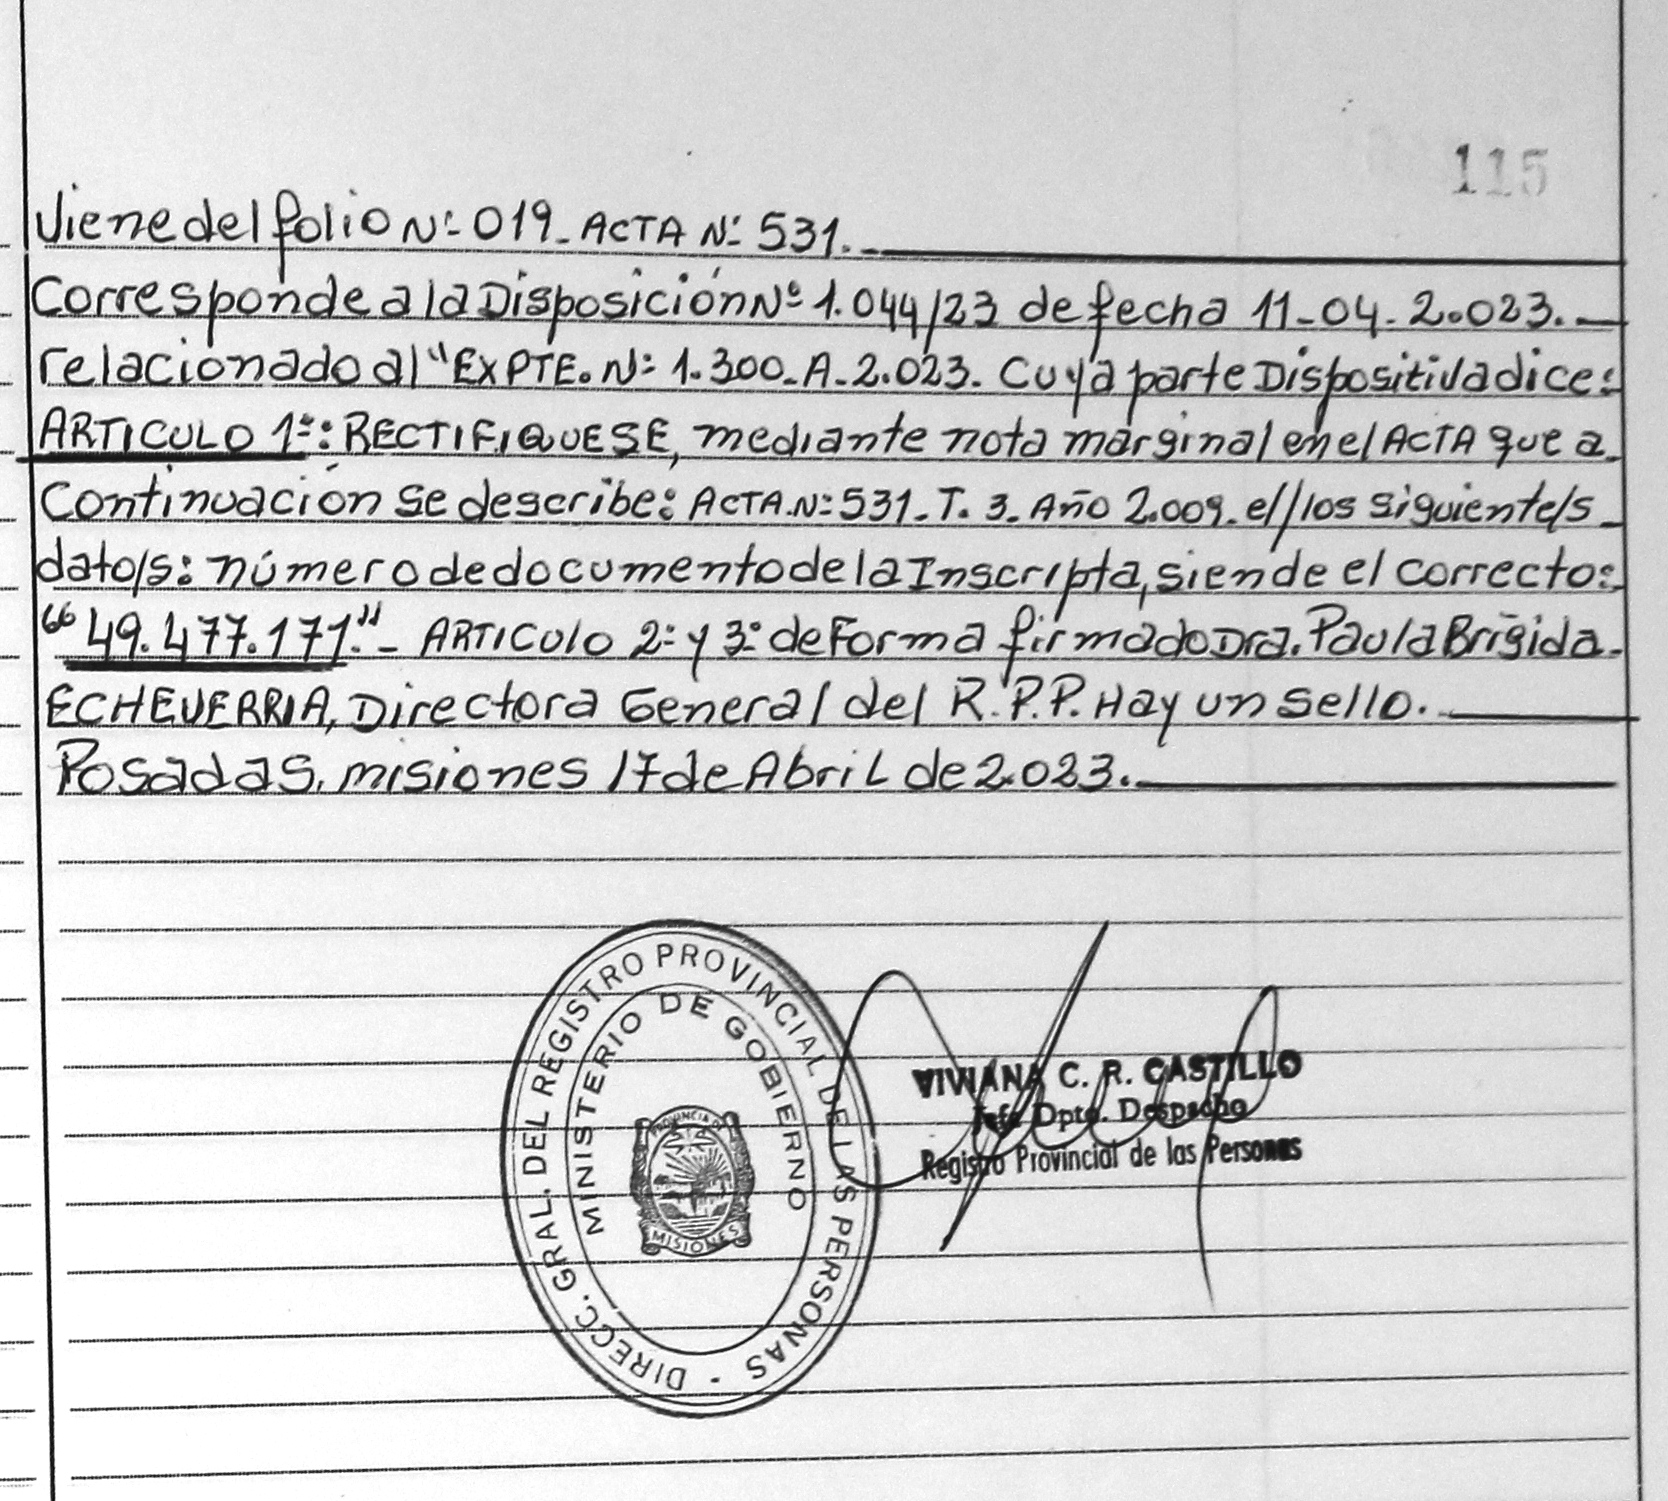 115
Viene del folio Nº 019_ ACTA Nº 531.
Corresponde a la Disposición Nº 1.044/23 de fecha 11-04-2.023.
relacionado al "EXPTE. Nº 1.300-A-2.023. Cuya parte Dispositiva dice:
ARTICULO 1º: RECTIFIQUESE, mediante nota marginal en el ACTA que a
Continuación se describe: ACTA.Nº 531_T. 3_Año 2.009. el/los siguiente/s
dato/s: número de documento de la Inscripta, siende el correcto:
"49.477.171."- ARTICULO 2º y 3º de Forma firmado Dra. Paula Brigida
ECHEVERRIA, Directora General del R.P.P. Hay un Sello.
Posadas, misiones 17 de Abril de 2.023.
DIRECC. GRAL. DEL REGISTRO PROVINCIAL DE LAS PERSONAS
MINISTERIO DE GOBIERNO
PROVINCIA DE
MISIONES
VIVIANA C. R. CASTILLO
Jefe Dpto. Despacho
Registro Provincial de las Personas